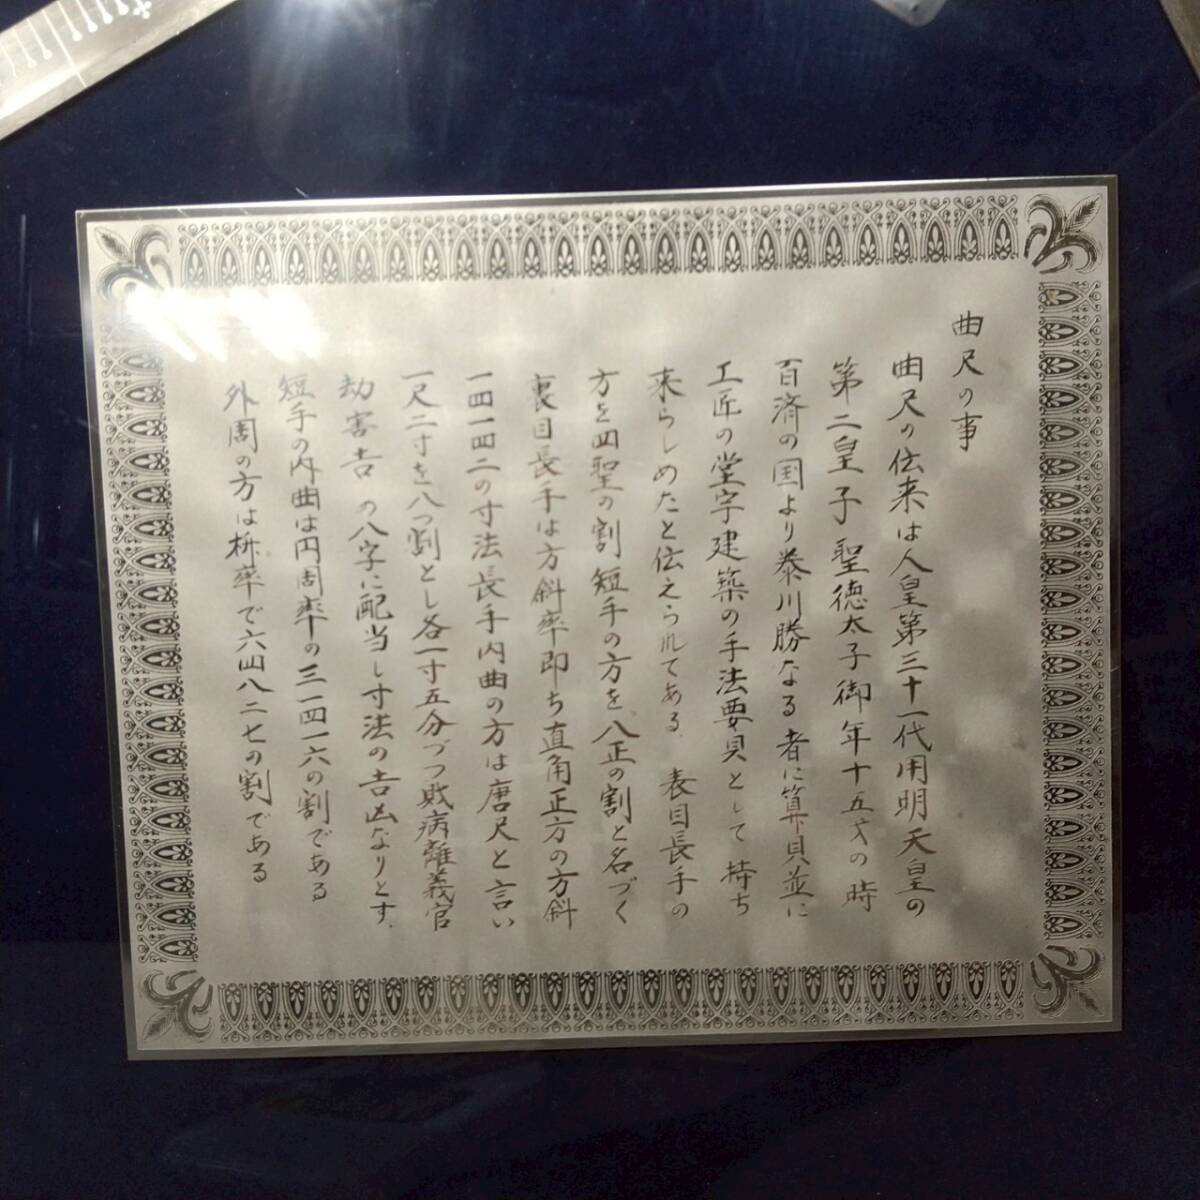 曲尺の事
曲尺の伝来は人皇第三十一代用明天皇の
第二皇子聖徳太子御年十五才の時
百済の国より泰川勝なる者に算具並に
工匠の堂宇建築の手法要具として持ち
来らしめたと伝えられてある 表目長手の
方を四聖の割短手の方を八正の割と名づく
裏目長手は方斜率即ち直角正方の方斜
一四一四二の寸法長手内曲の方は唐尺と言い
一尺二寸を八つ割とし各一寸五分づつ敗病離義官
劫害吉の八字に配当し寸法の吉凶なりとす.
短手の内曲は円周率の三一四一六の割である
外周の方は枡率で六四八二七の割である